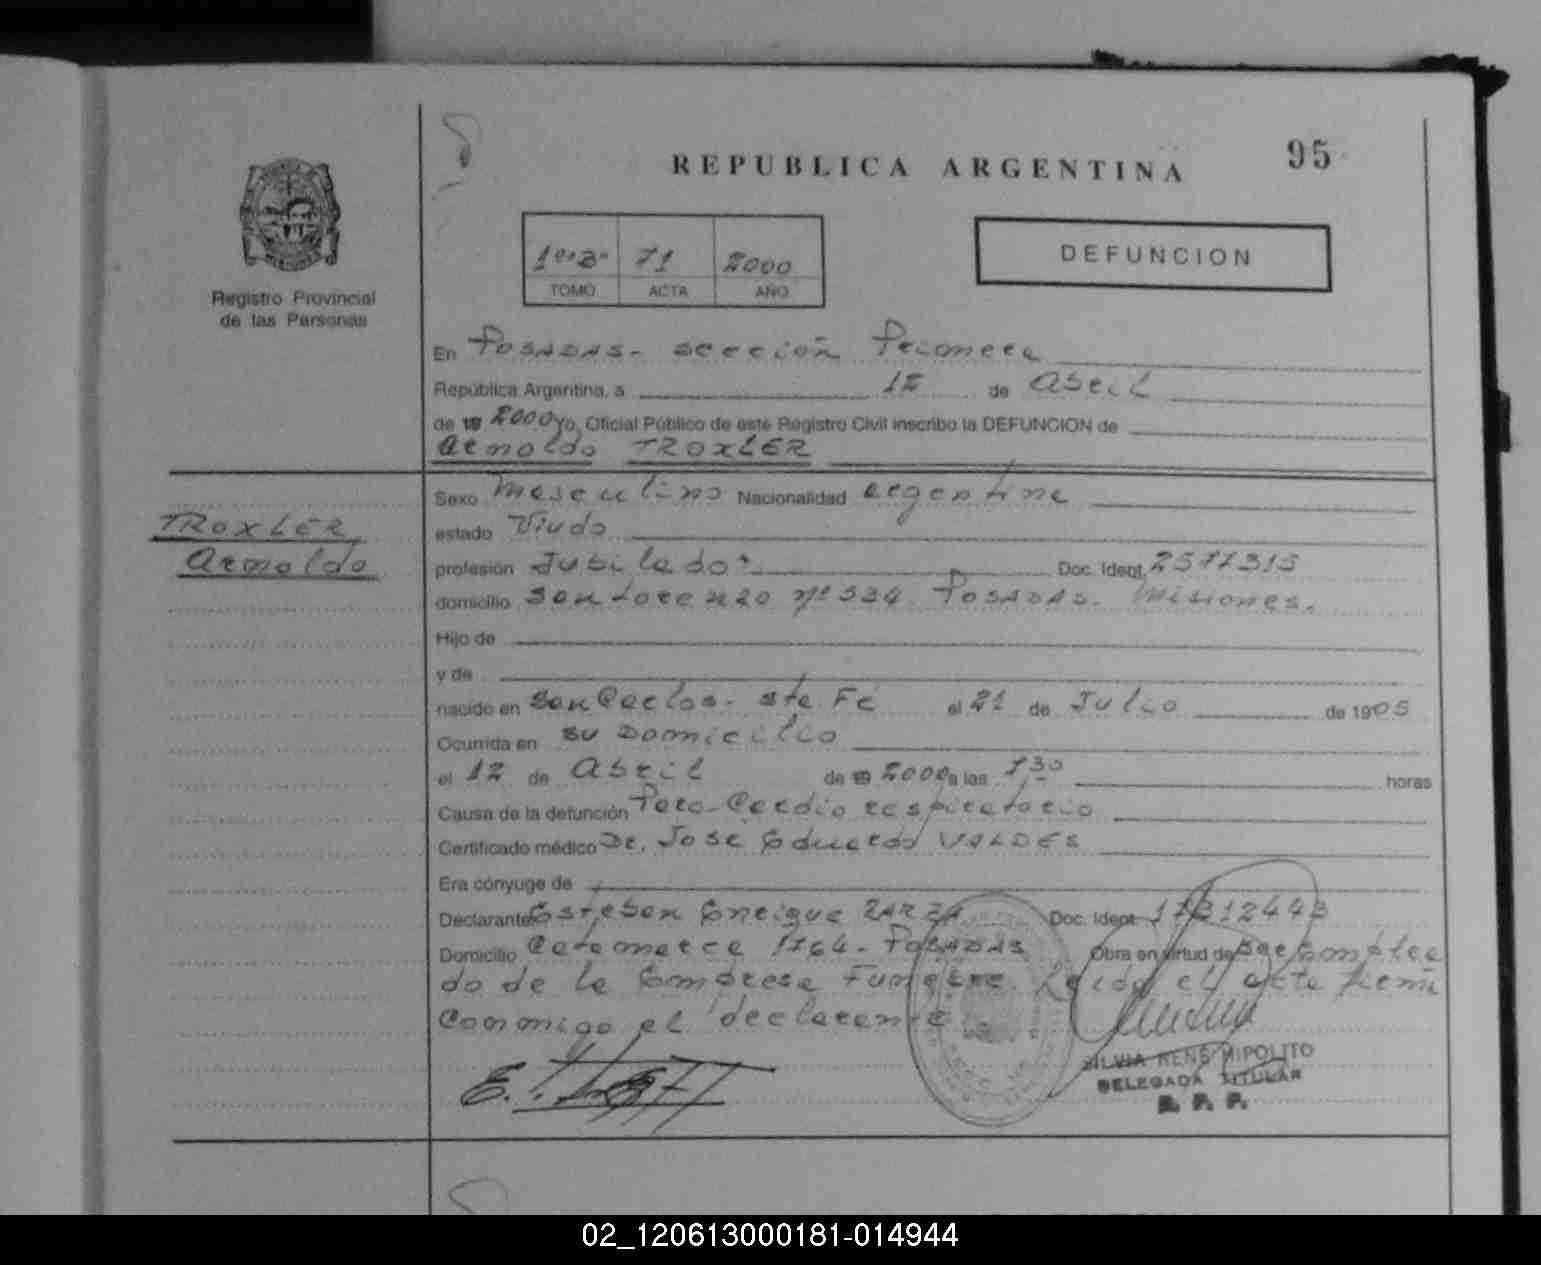 REPUBLICA ARGENTINA
95
Registro Provincial
de las Personas
71 2000
TOMO ACTA AÑO
DEFUNCION
En POSADAS- sección Primera
República Argentina, a 12 de Abril
de 19 2000 yo, Oficial Público de este Registro Civil inscribo la DEFUNCION de
Arnoldo TROXLER
TROXLER
Arnoldo
Sexo Masculino Nacionalidad argentina
estado Viudo
profesión Jubilado. Doc. Ident. 2577315
domicilio San Lorenzo nº 334 POSADAS. Misiones.
Hijo de
y de
nacido en San Carlos- Sta. Fé el 21 de Julio de 1905
Ocurrida en su Domicilio
el 12 de Abril de 19 2000 a las 7,30 horas
Causa de la defunción Paro-Cardio respiratorio
Certificado médico Dr. Jose Eduardo VALDES
Era cónyuge de
Declarante Esteban Enrique ZARZA Doc. Ident. 17312443
Domicilio Catamarca 1764- POSADAS Obra en virtud de ser emplea
do de la Empresa Funebre. Leida el acta firma
conmigo el declarante
SILVIA RENE HIPOLITO
DELEGADA TITULAR
R. P. P.
02_120613000181-014944